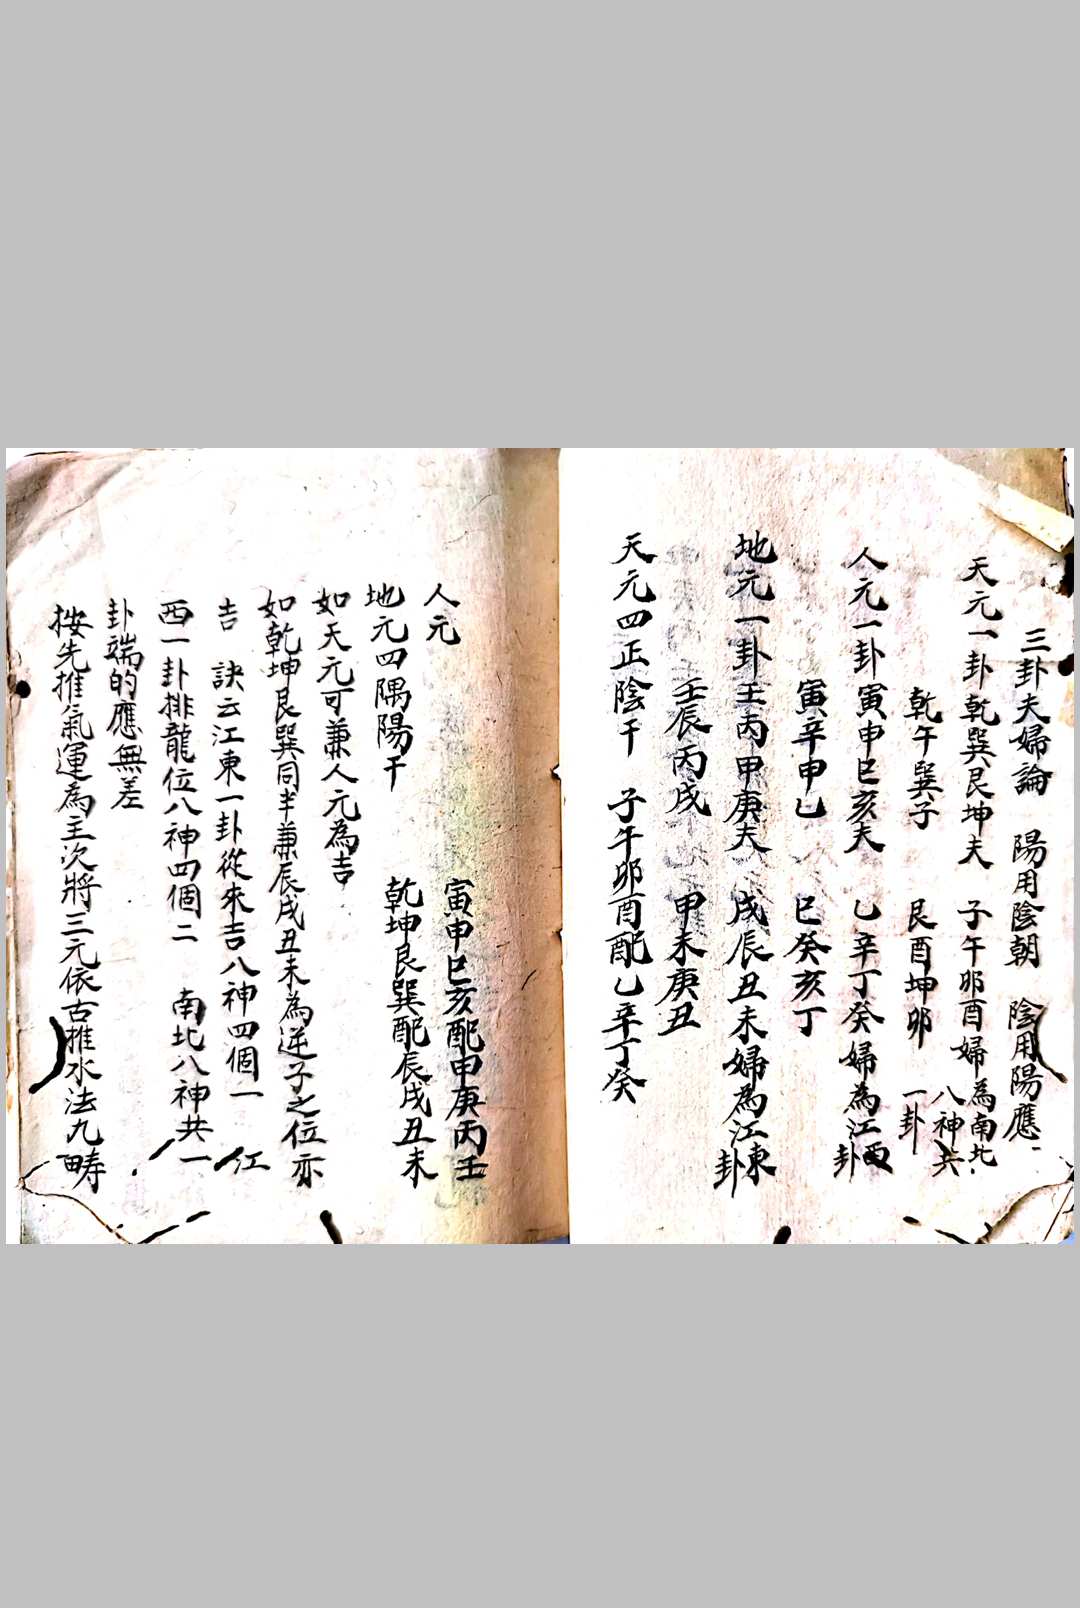 三卦夫婦論　陽用陰朝　陰用陽應
天元一卦乾巽艮坤夫　子午卯酉婦為南北
八神共
乾午巽子　艮酉坤卯　一卦
人元一卦寅申巳亥夫　乙辛丁癸婦為江西
卦
寅辛申乙　巳癸亥丁
地元一卦壬丙甲庚夫　戌辰丑未婦為江東
卦
壬辰丙戌　甲未庚丑
天元四正陰干　子午卯酉配乙辛丁癸
人元　寅申巳亥配甲庚丙壬
地元四隅陽干　乾坤艮巽配辰戌丑未
如天元可兼人元為吉
如乾坤艮巽同半兼辰戌丑未為逆子之位亦
吉　訣云江東一卦從來吉八神四個一　江
西一卦排龍位八神四個二　南北八神共一
卦端的應無差
按先推氣運為主次將三元依古推水法九疇